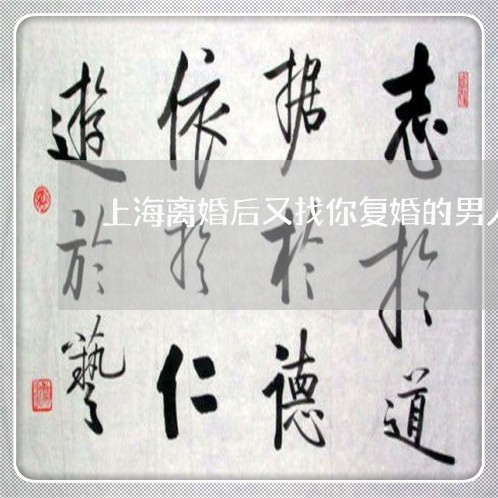 志於道
据於德
依於仁
遊於藝
上海离婚后又找你复婚的男人